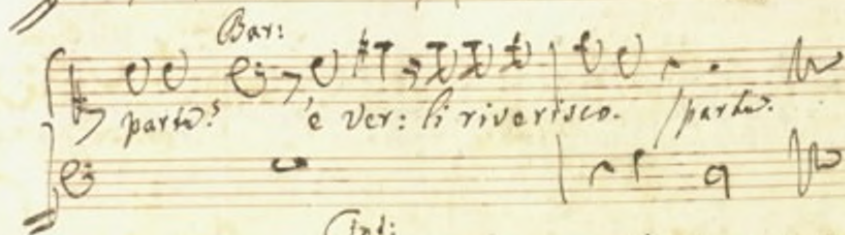 Bar:
parto? è ver: li riverisco. /parte.
Ind: